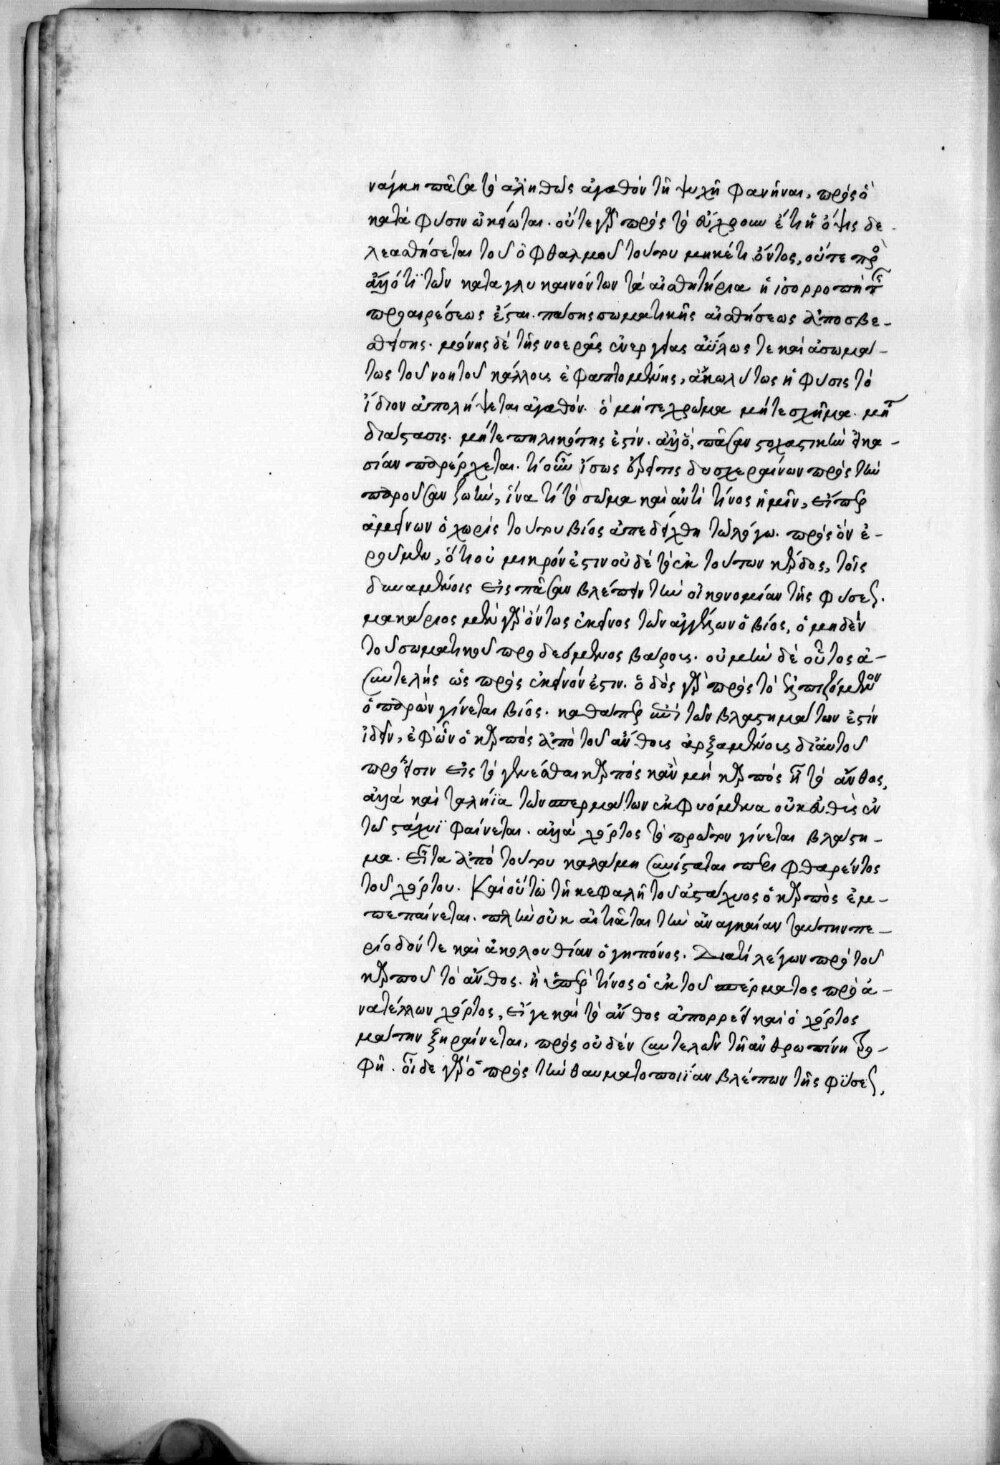 νάγκη πᾶσα τὸ ἀληθῶς ἀγαθὸν τῇ ψυχῇ φανῆναι, πρὸς ὃ
κατὰ φύσιν ὠκείωται. οὔτε γὰρ πρὸς τὸ εὔχρουν ἔτι ἡ ὄψις δε-
λεασθήσεται τοῦ ὀφθαλμοῦ τούτου μηκέτι ὄντος, οὔτε πρὸς
ἄλλό τι τῶν καταγλυκαινόντων τὰ αἰσθητήρια ἡ ἰσορροπὴ τῆς
προαιρέσεως ἔσται. πάσης σωματικῆς αἰσθήσεως ἀποσβε-
σθείσης. μόνης δὲ τῆς νοερᾶς ἐνεργείας ἀΰλως τε καὶ ἀσωμά-
τως τοῦ νοητοῦ κάλλους ἐφαπτομένης, ἀκωλύτως ἡ φύσις τὸ
ἴδιον ἀπολήψεται ἀγαθόν. ὃ μήτε χρῶμα μήτε σχῆμα. μήτε
διάστασις. μήτε πηλικότης ἐστίν. ἀλλ' ὃ, πᾶσαν στοχαστικὴν εἰκα-
σίαν παρέρχεται. τί οὖν ἴσως ἐρεῖ τις δυσχεραίνων πρὸς τὴν
παροῦσαν ζωὴν, ἵνα τί τὸ σῶμα καὶ ἀντὶ τίνος ἡμῖν, εἴπερ
ἀμείνων ὁ χωρὶς τούτου βίος ἀπεδείχθη τῷ λόγῳ. πρὸς ὃν ἐ-
ροῦμεν, ὅτι οὐ μικρόν ἐστιν οὐδὲ τὸ ἐκ τούτων κέρδος, τοῖς
δυναμένοις εἰς πᾶσαν βλέπειν τὴν οἰκονομίαν τῆς φύσεως.
μακάριος μὲν γὰρ ὄντως ἐκεῖνος τῶν ἀγγέλων ὁ βίος, ὁ μηδὲν
τοῦ σωματικοῦ προσδεόμενος βάρους. οὐ μὴν δὲ οὗτος ἀ-
συντελής ὡς πρὸς ἐκεῖνόν ἐστιν. ὁδὸς γὰρ πρὸς τὸ ἐλπιζόμενον
ὁ παρὼν γίνεται βίος. καθάπερ ἐπὶ τῶν βλαστημάτων ἐστὶν
ἰδεῖν, ἐφ' ὧν ὁ καρπὸς ἀπὸ τοῦ ἄνθους ἀρξαμένοις δι' αὐτοῦ
πρόεισιν εἰς τὸ γενέσθαι καρπὸς κἂν μὴ καρπὸς ᾖ τὸ ἄνθος,
ἀλλὰ καὶ τὰ λήϊα τῶν σπερμάτων ἐκφυόμενα οὐκ εὐθὺς ἐν
τῷ στάχυϊ φαίνεται. ἀλλὰ χόρτος τὸ πρῶτον γίνεται βλάστη-
μα. εἶτα ἀπὸ τούτου καλάμη συνίσταται περιφθαρέντος
τοῦ χόρτου. Καὶ οὕτω τῇ κεφαλῇ τοῦ ἀστάχυος ὁ καρπὸς ἐμ-
πεπαίνεται. πλὴν οὐκ αἰτιᾶται τὴν ἀναγκαίαν ταύτην πε-
ρίοδόν τε καὶ ἀκολουθίαν ὁ γηπόνος. Διατί λέγων πρὸ τοῦ
καρποῦ τὸ ἄνθος. ἢ ὑπὲρ τίνος ὁ ἐκ τοῦ σπέρματος προα-
νατέλλων χόρτος, εἴγε καὶ τὸ ἄνθος ἀπορρεῖ καὶ ὁ χόρτος
μάτην ξηραίνεται, πρὸς οὐδὲν συντελῶν τῇ ἀνθρωπίνῃ τρο-
φῇ. οἶδε γὰρ ὁ πρὸς τὴν θαυματοποιΐαν βλέπων τῆς φύσεως,